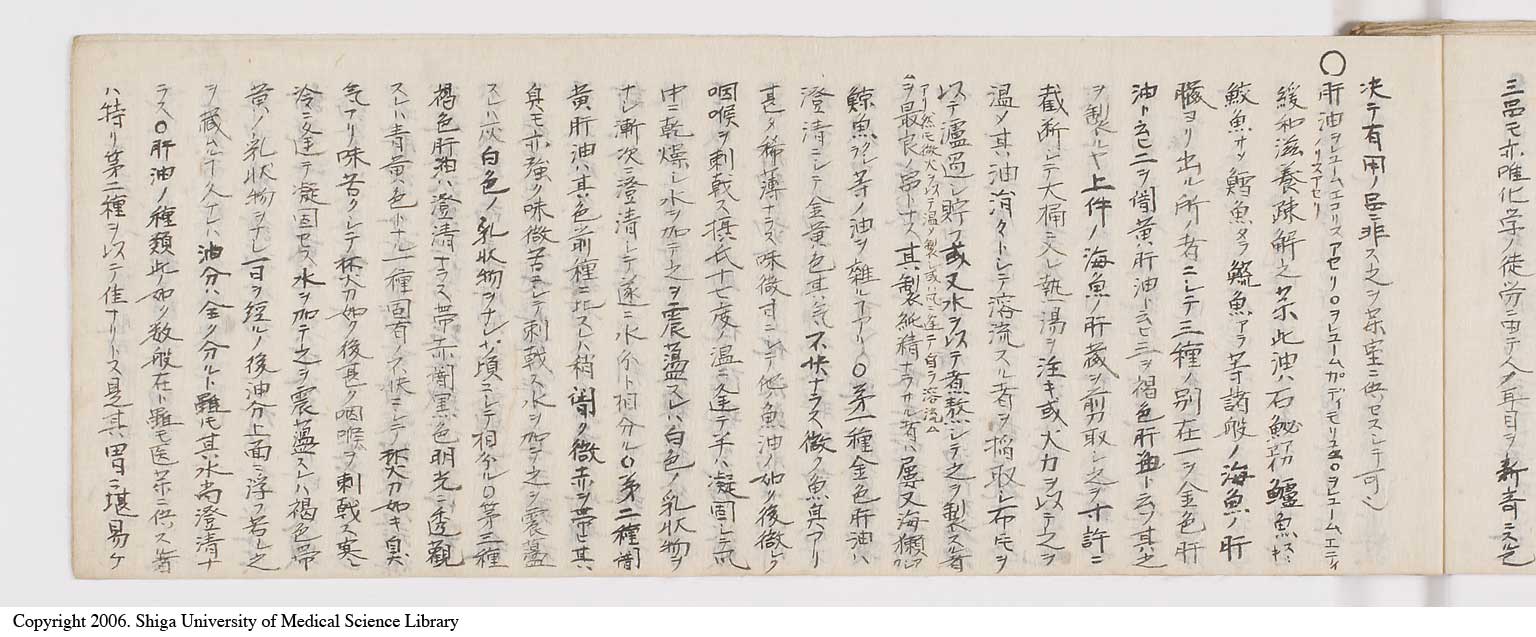 三品モ亦唯化学ノ徒労ニ由テ人ノ耳目ヲ新奇ニス
決テ有用ノ品ニ非ス之ヲ薬室ニ供セスシテ可
○肝油 ヲレユームエコリス アセリ○ヲレユーム
緩和滋養疎解之薬此油ハ石鮅 鱸魚
鮫魚 サメ 鱈魚 タラ 等諸般ノ海魚ノ肝
臓ヨリ出ル所ノ者ニシテ三種ノ別在一ヲ金色肝
油ト云ヒ二ヲ闇黄肝油ト云ヒ三ヲ褐色肝油ト云フ其之
ヲ製トルヤ上件ノ海魚ノ肝蔵ヲ剪取シ之ヲ十許ニ
截断シテ大桶ニ入レ熱湯ヲ注キ或ハ火力ヲ以テ之ヲ
温メ其油涓々トシテ溶流スル者ヲ掬取シ布片ヲ
以テ濾過シ貯フ或又水ヲ以テ煮熬シテ之ヲ製スル者
アリ然モ微火ヲ以テ温メ製シ或ハ 自ラ溶流
ヲ最良ノ品トナス其製紙精ナラサル者ハ屡又海獺
鯨魚 クシラ 等ノ油ヲ雑ルアリ○第一種金色肝油ハ
澄清ニシテ金黄色其気不快ナラス微ク魚臭アリ
甚タ稀薄ナラス味微甘ニシテ他魚油ノ如ク後微シク
咽喉ヲ刺戟ス摂氏十七度ノ温ニ逢テ半ハ凝固シテ
中ニ乾燥シ水ヲ加テ之ヲ震蘯スレハ白色ノ乳状物ヲ
ナシ漸次ニ澄清シテ遂ニ水分ト相分ル○第二種闇
黄肝油ハ其色前種ニ比スレハ稍闇ク微赤ヲ帯ヒ其
臭モ亦強ク味微苦ニシテ刺戟ス水ヲ加テ之ヲ震蘯
スレハ灰白色ノ乳状物ヲナシ少頃ニシテ相分ル○第三種
褐色肝油ハ澄清ナラス帯赤闇黒色明光ニ透観
スレハ青黄色トナル一種固有ノ不快ニシテ 如キ臭
気アリ味苦クシテ 如ク後甚ク咽喉ヲ刺戟ス寒
冷ニ逢テ凝固セス水ヲ加テ之ヲ震蘯スレハ褐色帯
黄ノ乳状物ヲナシ一日ヲ経ルノ後油分上面ニ浮フ若シ之
ヲ蔵ムコト久ケレハ油分ハ全ク分ルト雖モ其水尚澄清ナ
ラス○肝油ノ種類此ノ如ク数般在ト雖モ医薬ニ供ス者
ハ特リ第二種ヲ以テ佳ナリトス是其胃ニ堪易ケ
Copyright 2006. Shiga University of Medical Science Library